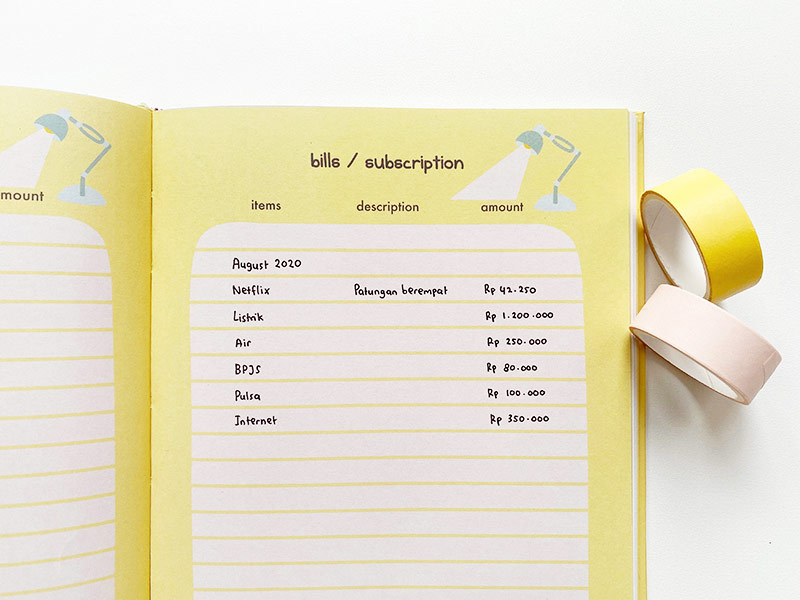 mount
bills / subscription
items description amount
August 2020
Netflix Patungan berempat Rp 42.250
Listrik Rp 1.200.000
Air Rp 250.000
BPJS Rp 80.000
Pulsa Rp 100.000
Internet Rp 350.000